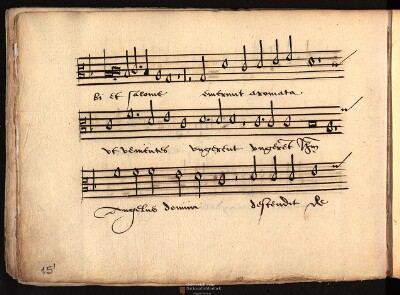 bi et salome emerunt aromata.
ut venientes ungerent ungeret Ihm
Angelus domini descendit de
15'